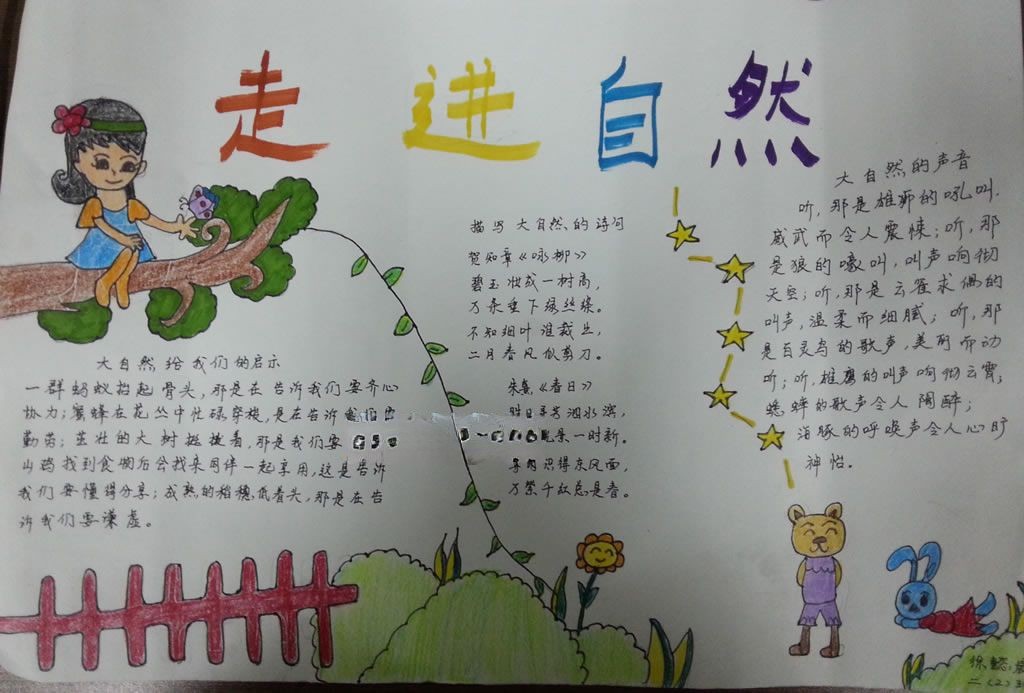 走进自然
大自然给我们的启示
一群蚂蚁抬起骨头，那是在告诉我们要齐心
协力；蜜蜂在花丛中忙碌穿梭，是在告诉
勤劳；茁壮的大树挺拔着，那是我们要
山鸡找到食物后会找来同伴一起享用，这是告诉
我们要懂得分享；成熟的稻穗低着头，那是在告
诉我们要谦虚。
描写大自然的诗句
贺知章《咏柳》
碧玉妆成一树高，
万条垂下绿丝绦。
不知细叶谁裁出，
二月春风似剪刀。
朱熹《春日》
胜日寻芳泗水滨，
景一时新。
等闲识得东风面，
万紫千红总是春。
大自然的声音
听，那是雄狮的吼叫，
威武而令人震悚；听，那
是狼的嚎叫，叫声响彻
天空；听，那是云雀求偶的
叫声，温柔而细腻；听，那
是百灵鸟的歌声，美丽而动
听；听，雄鹰的叫声响彻云霄；
蟋蟀的歌声令人陶醉；
海豚的呼唤声令人心旷
神怡。
徐懿
二（2）